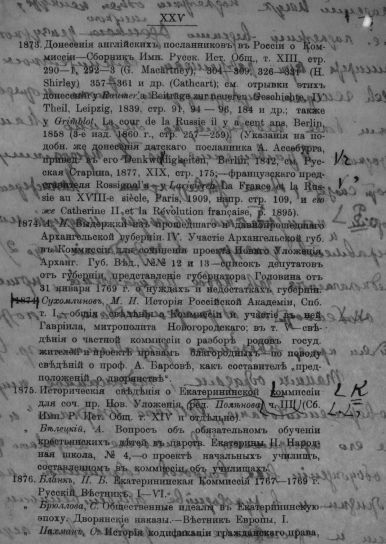 XXV
1873. Донесенія англійскихъ посланниковъ въ Россіи о Ком-
миссіи—Сборникъ Имп. Русск. Ист. Общ., т. XIII, стр.
290—1, 292—3 (G. Macartney); 304—309, 326—331 (H.
Shirley) 357—361 и др. (Cathcart); см. отрывки этихъ
донесеній у Raumer'a, Beiträge zur neueren Geschichte, IV
Theil, Leipzig, 1839, стр. 91, 94—96, 184 и др.; также
у Grimblot, La cour de la Russie il y a cent ans, Berlin,
1858 (3-е изд. 1860 г., стр. 257—259). (Указанія на подо-
бн. же донесенія датскаго посланника А. Ассебурга
привед. въ его Denkwürdigkeiten, Berlin, 1842, см. Рус-
ская Старина, 1877, XIX, стр. 175;—французскаго пред-
ставителя Rossignol'я—у Larivière, La France et la Rus-
sie au XVIII-e siècle, Paris, 1909, напр. стр. 109, и его
же Catherine II et la Révolution française, p. 1895).
1874. А. И. Выдержки изъ прошедшаго и давнопрошедшаго
Архангельской губерніи IV. Участіе Архангельской губ.
въ Коммиссіи для сочиненія проекта Новаго Уложенія,
Арханг. Губ. Вѣд., №№ 12 и 13—списокъ депутатовъ
отъ губерніи, представленіе губернатора Головина отъ
31 января 1769 г. о нуждахъ и недостаткахъ губерніи.
[1874] Сухомлиновъ, М. И. Исторія Россійской Академіи, Спб.
т. I,—общія свѣдѣнія о Коммиссіи и участіе въ ней
Гавріила, митрополита Новгородскаго; въ т. V—свѣ-
дѣнія о частной коммиссіи о разборѣ родовъ госуд.
жителей и проектѣ правамъ благородныхъ—по поводу
свѣдѣній о проф. А. Барсовѣ, какъ составителѣ „пред-
положеній о дворянствѣ“.
1875. Историческія свѣдѣнія о Екатерининской Коммиссіи
для соч. пр. Нов. Уложенія, (ред. Полѣнова) ч. III (Сб.
Имп. Р. Ист. Общ. т. XIV и отдѣльно)
„ Бѣлецкій, А. Вопросъ объ обязательномъ обученіи
крестьянскихъ дѣтей въ царств. Екатерины II. Народ-
ная школа, № 4,—о проектѣ начальныхъ училищъ,
составленномъ въ коммиссіи объ училищахъ.
1876. Бланкъ, П. Б. Екатерининская Коммиссія 1767—1769 г.
Русскій Вѣстникъ, I—VI.
„ Брюллова, С. Общественные идеалы въ Екатерининскую
эпоху: Дворянскіе наказы.—Вѣстникъ Европы, I.
„ Пахманъ, С. Исторія кодификаціи гражданскаго права,